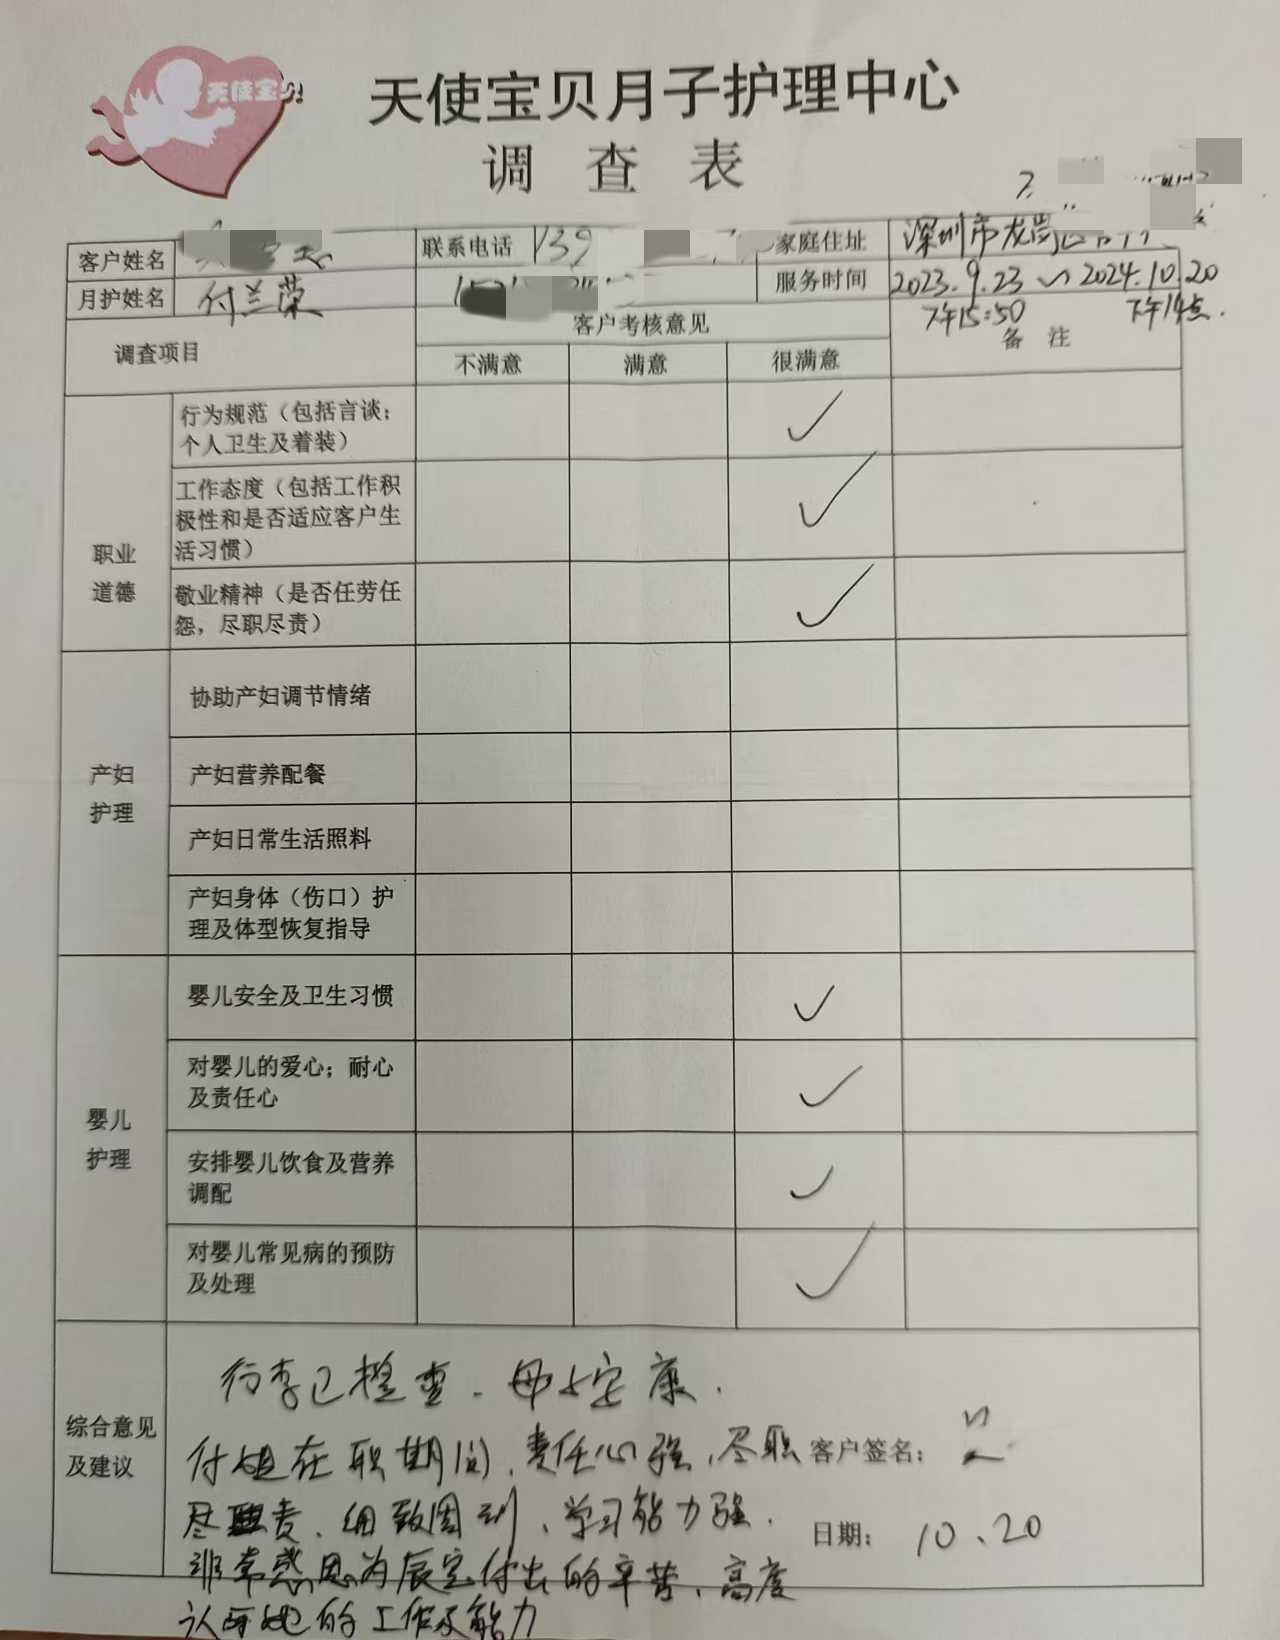 天使宝贝
天使宝贝月子护理中心
调查表
客户姓名 联系电话 139 家庭住址 深圳市龙岗
月护姓名 付兰荣 服务时间 2023.9.23 ~ 2024.10.20
下午15:50 下午14点.
调查项目 客户考核意见 备注
不满意 满意 很满意
职业
道德
行为规范（包括言谈；
个人卫生及着装）
工作态度（包括工作积
极性和是否适应客户生
活习惯）
敬业精神（是否任劳任
怨，尽职尽责）
产妇
护理
协助产妇调节情绪
产妇营养配餐
产妇日常生活照料
产妇身体（伤口）护
理及体型恢复指导
婴儿
护理
婴儿安全及卫生习惯
对婴儿的爱心；耐心
及责任心
安排婴儿饮食及营养
调配
对婴儿常见病的预防
及处理
综合意见
及建议
行李已检查. 母女安康.
付姐在职期间，责任心强，尽职
尽责、细致周到、学习能力强.
非常感恩为辰宝付出的辛苦、高度
认可她的工作及能力
客户签名：
日期： 10.20